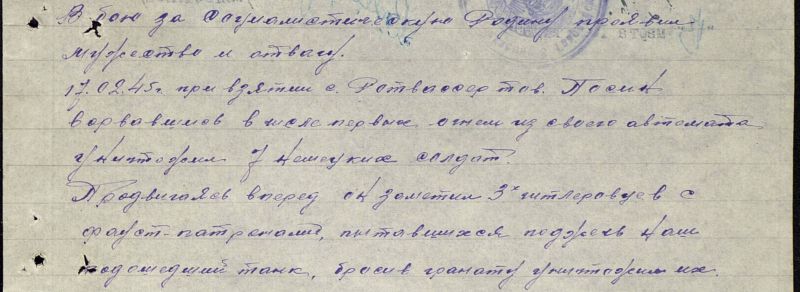 В бою за Социалистическую Родину проявил
мужество и отвагу.
17.02.45г. при взятии с. Ротвассер тов. Посик
ворвавшись в числе первых огнем из своего автомата
уничтожил 7 немецких солдат.
Продвигаясь вперед он заметил 3х гитлеровцев с
фауст-патронами, пытавшихся поджечь наш
подошедший танк, бросив гранату уничтожил их.